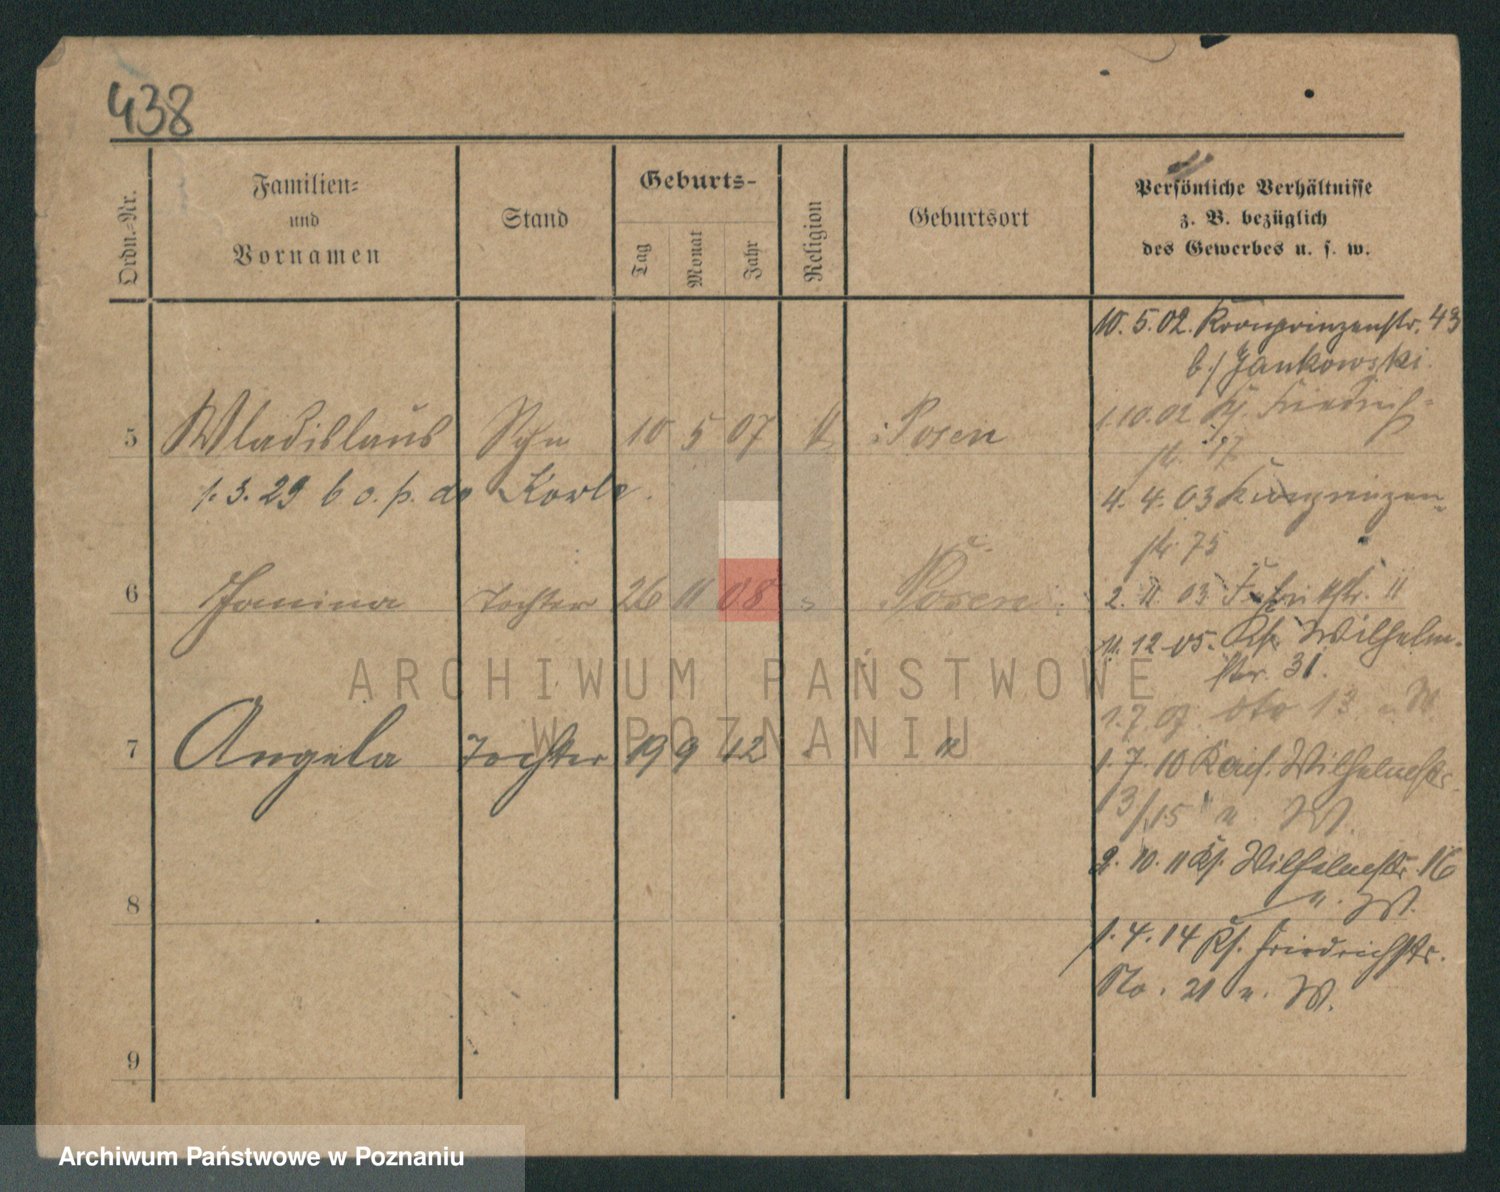 438
Ordn.-Nr.
Familien-
und
Vornamen
Stand
Geburts-
Tag
Monat
Jahr
Religion
Geburtsort
Persönliche Verhältnisse
z. B. bezüglich
des Gewerbes u. s. w.
10. 5. 02. Kronprinzenstr. 43
b./ Jankowski.
5 Wladislaus Sohn 10 5 07 Posen
1. 10. 02 Friedrich-
str. 17
1. 3. 29
4. 4. 03 Kronprinzen-
str. 75
6 Janina Tochter 26 11 08 Posen
2. 11 03 11
11. 12. 05. Wilhelm-
str. 31.
1. 7. 07. 13 u. W
7 Angela Tochter 19 9 12 "
1. 7. 10 Wilhelmstr.
13/15 u. W.
2. 10. 11 Wilhelmstr. 16
u. W.
8
1. 4. 14 Friedrichstr.
No. 21 u. W.
9
ARCHIWUM PAŃSTWOWE
W POZNANIU
Archiwum Państwowe w Poznaniu